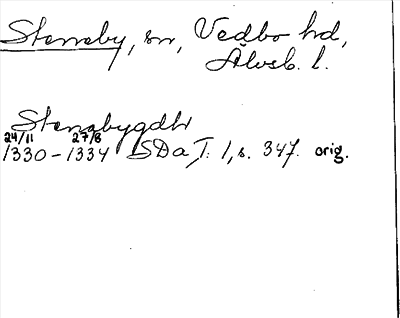 Stensby, sn, Vedbo hd,
Älvsb. l.
Stensbygdh
24/11 27/8
1330-1334 SDa I: 1, s. 347. orig.